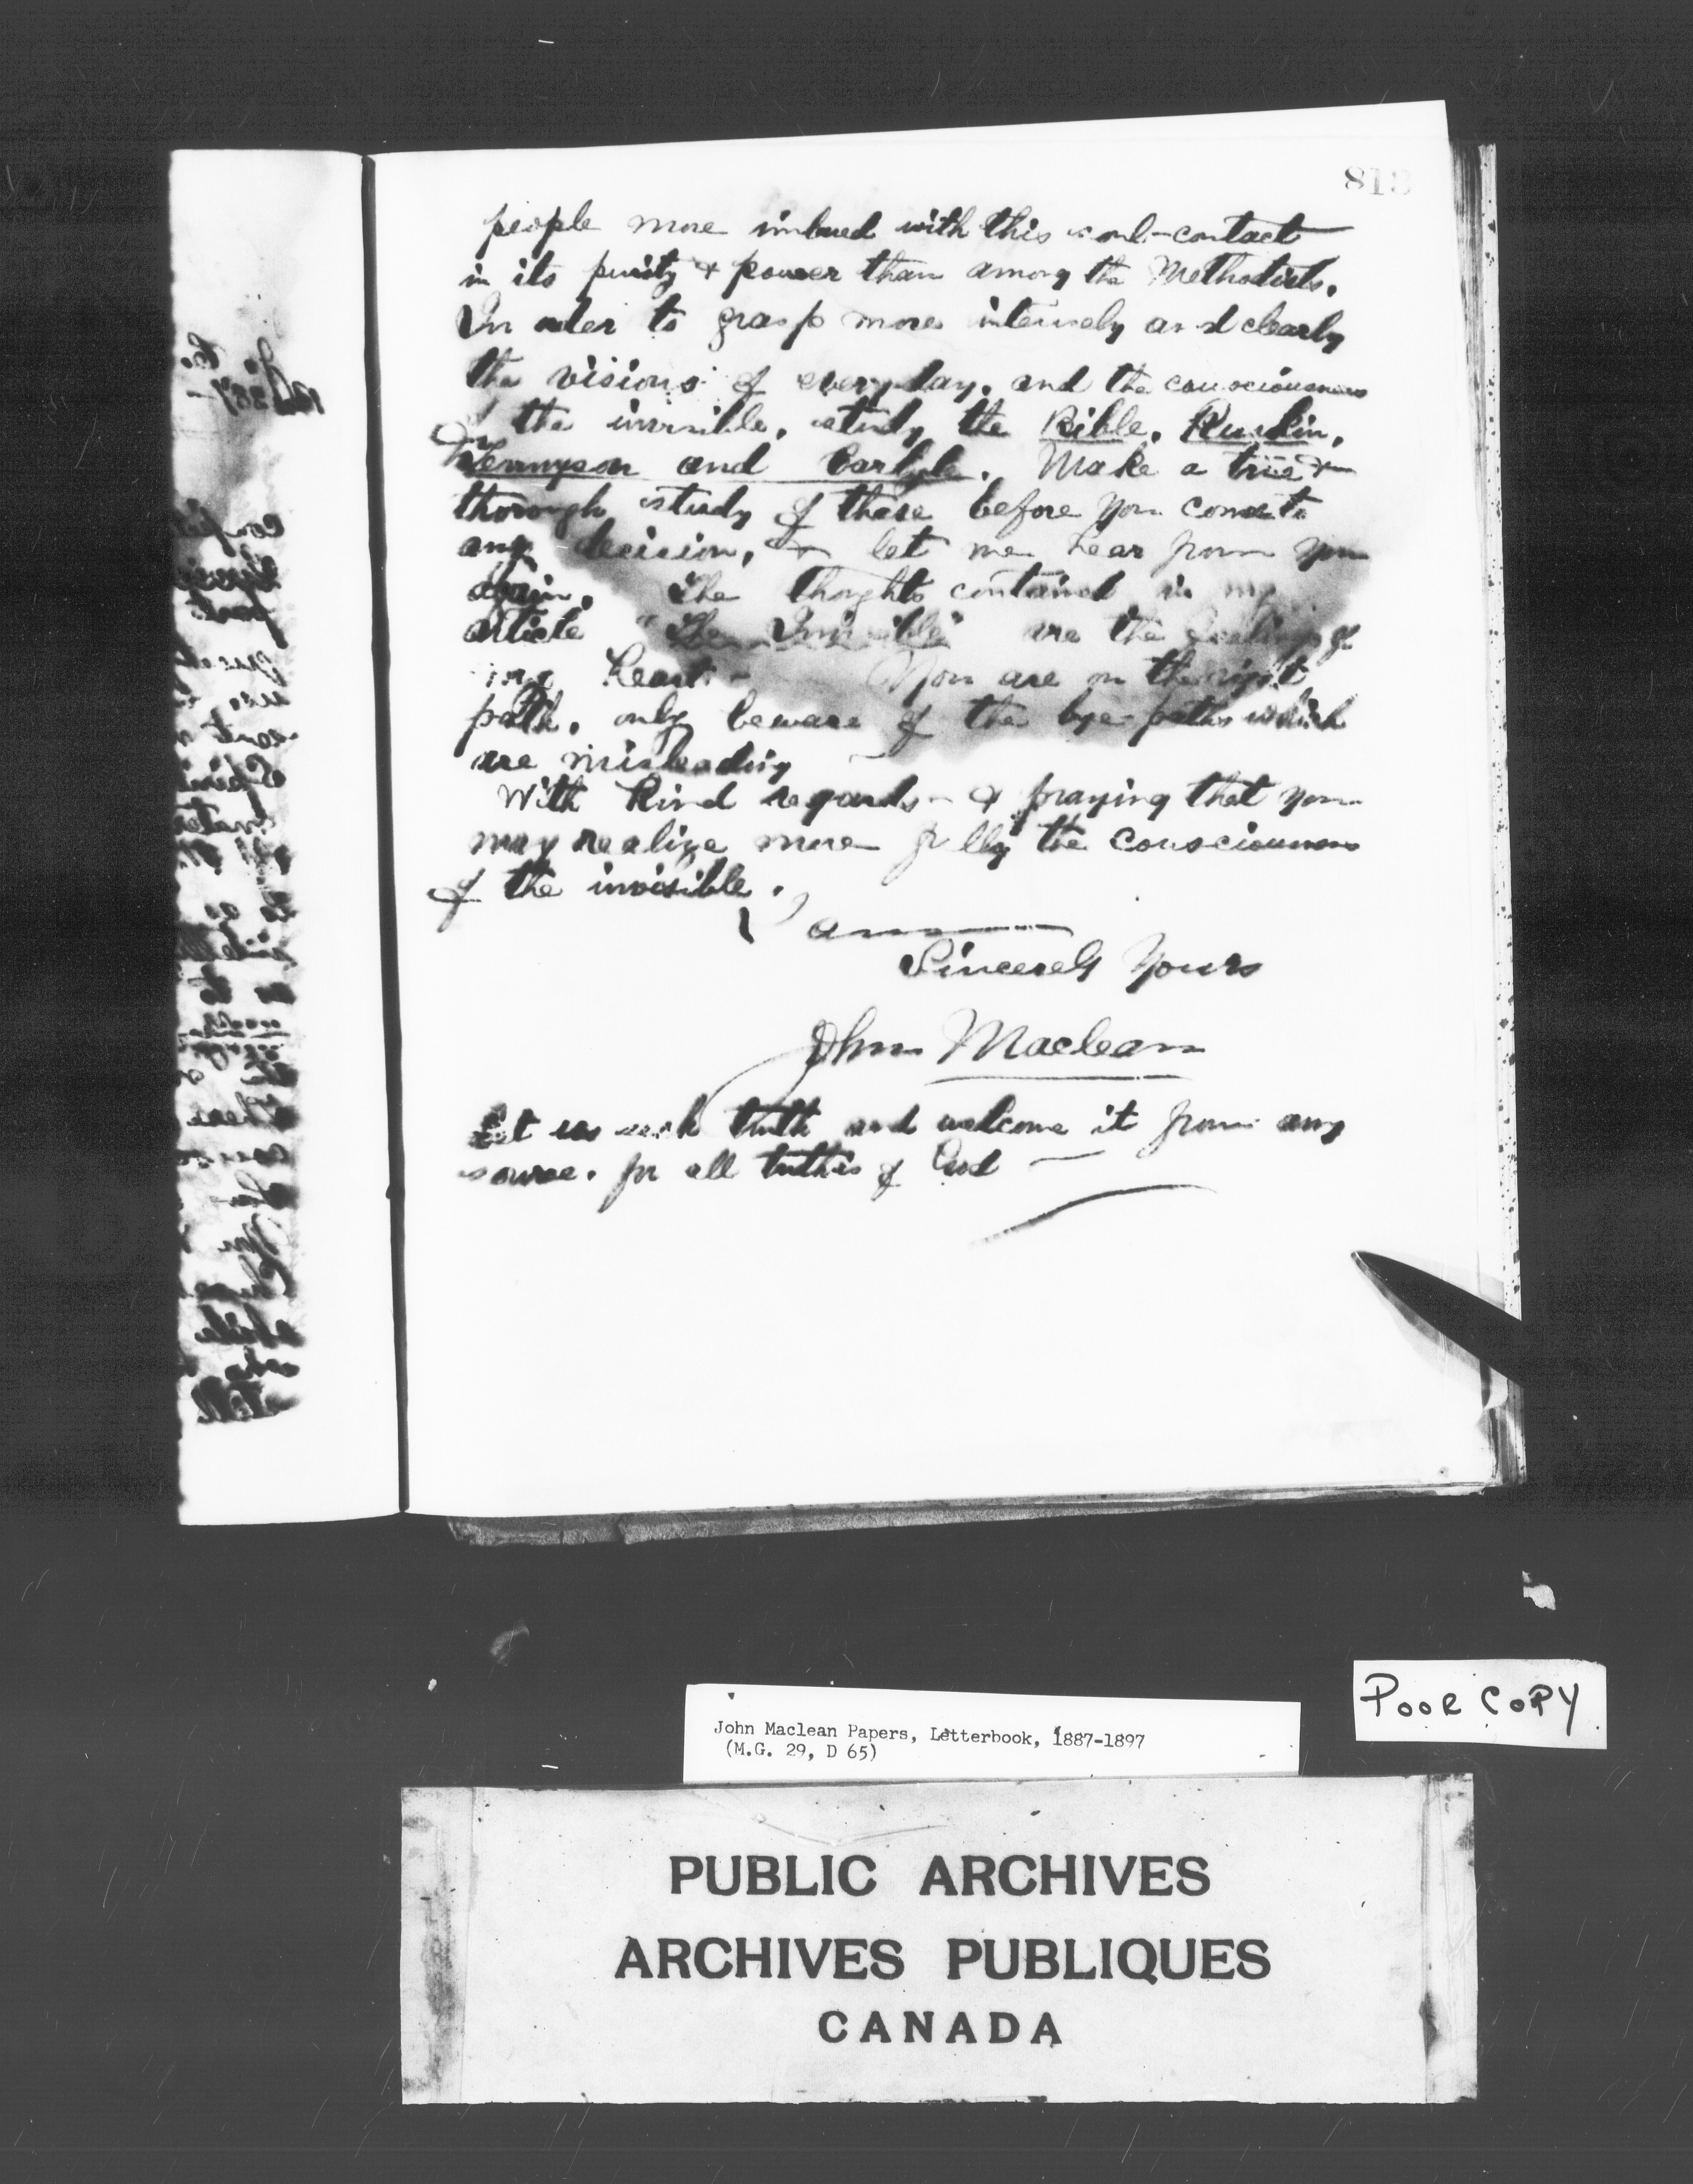 813
people more imbued with this soul-contact
in its purity & power than among the Methodists.
In order to grasp more intensely and clearly
the visions of everyday, and the consciousness
of the invisible, study the Bible, Ruskin,
Tennyson and Carlyle. Make a true &
thorough study of these before you come to
any decision, & let me hear from you
again. The thoughts contained in my
article "The Invisible" are the feelings of
my heart - You are on the right
path, only beware of the bye-paths which
are misleading
With kind regards - & praying that you
may realize more fully the consciousness
of the invisible.
I am
Sincerely Yours
John Maclean
Let us seek truth and welcome it from any
source. for all truth is of God —
POOR COPY
John Maclean Papers, Letterbook, 1887-1897
(M.G. 29, D 65)
PUBLIC ARCHIVES
ARCHIVES PUBLIQUES
CANADA